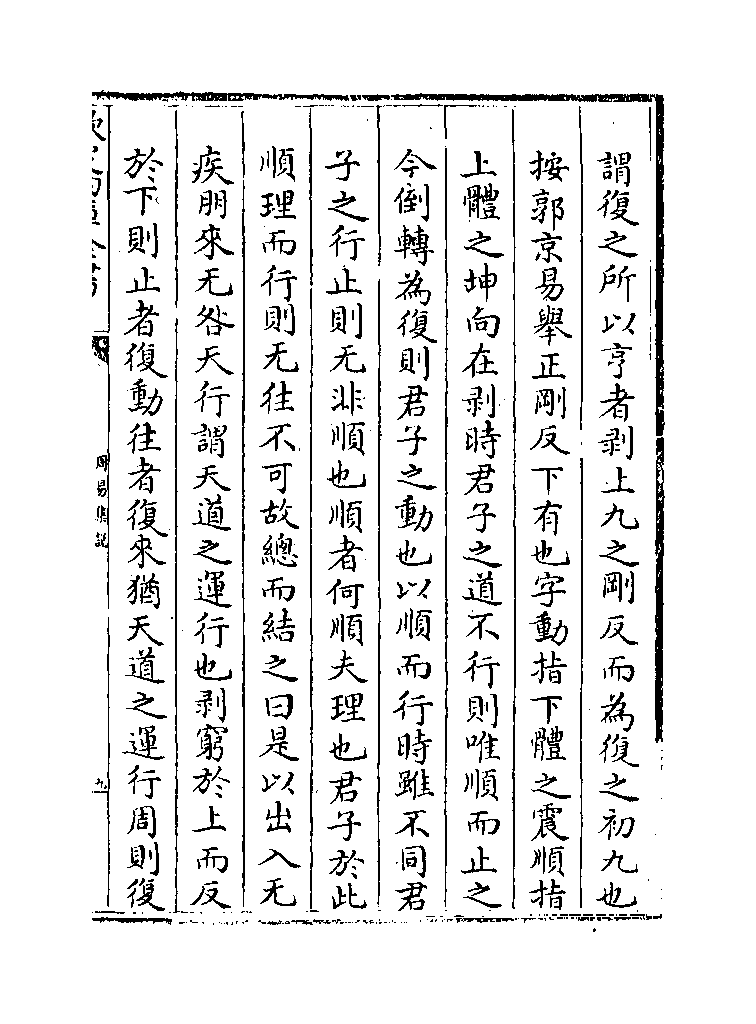 謂復之所以亨者剥上九之剛反而為復之初九也
按郭京易舉正剛反下有也字動指下體之震順指
上體之坤向在剥時君子之道不行則唯順而止之
今倒轉為復則君子之動也以順而行時雖不同君
子之行止則无非順也順者何順夫理也君子於此
順理而行則无往不可故總而結之曰是以出入无
疾朋來无咎天行謂天道之運行也剥窮於上而反
於下則止者復動往者復來猶天道之運行周則復
周易集説
九